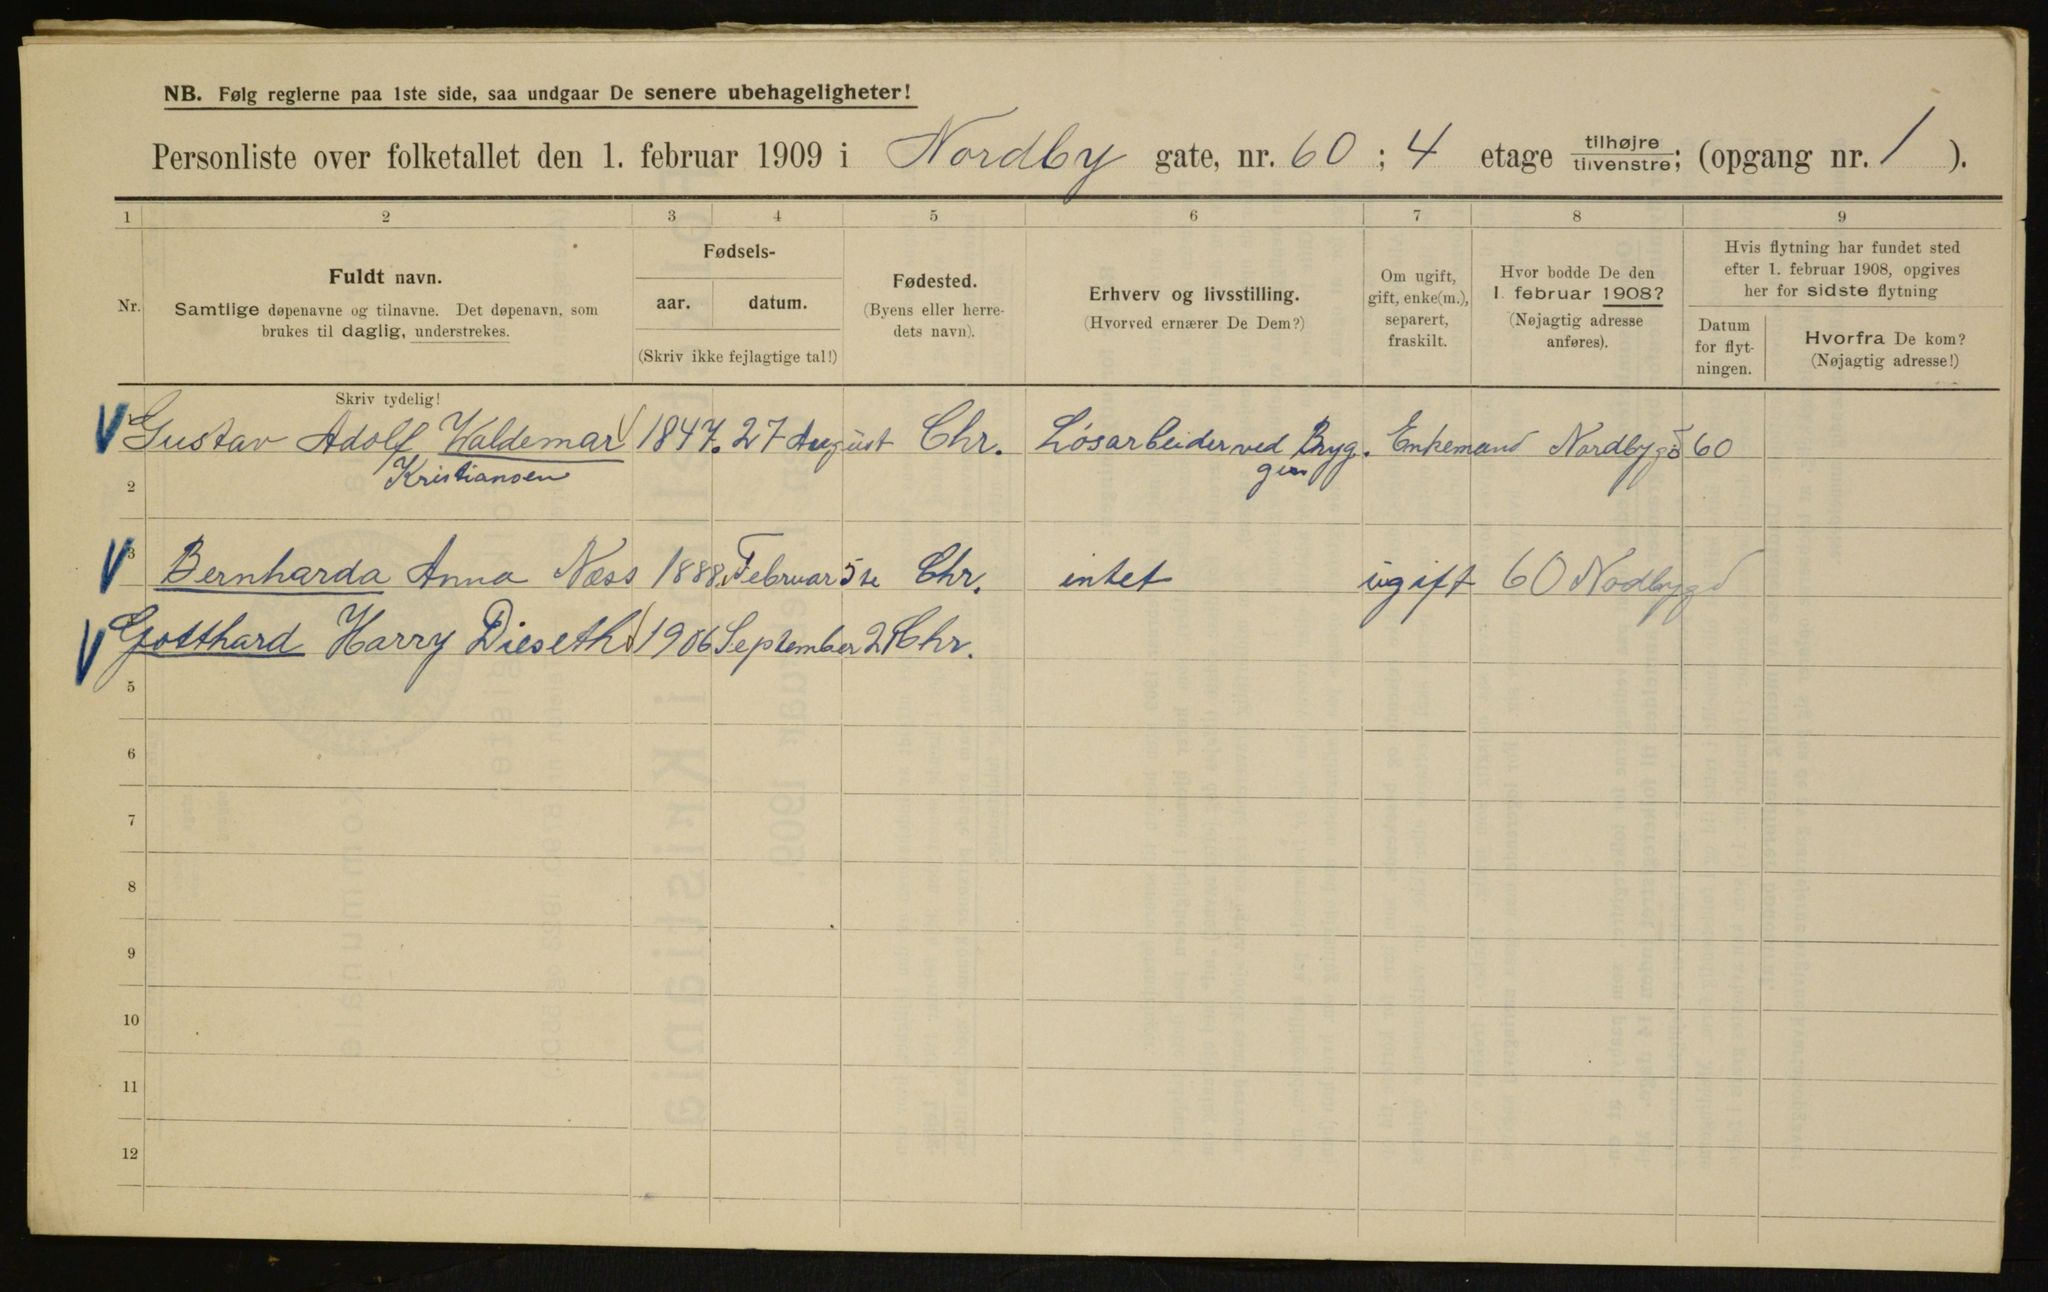 NB. Følg reglerne paa 1ste side, saa undgaar De senere ubehageligheter!
Personliste over folketallet den 1. februar 1909 i Nordby gate, nr. 60 ; 4 etage tilhøjre tilvenstre; (opgang nr. 1 ).
1 2 3 4 5 6 7 8 9
Nr.
Fuldt navn.
Samtlige døpenavne og tilnavne. Det døpenavn, som
brukes til daglig, understrekes.
Skriv tydelig!
Fødsels-
aar. datum.
(Skriv ikke fejlagtige tal!)
Fødested.
(Byens eller herre-
dets navn).
Erhverv og livsstilling.
(Hvorved ernærer De Dem?)
Om ugift,
gift, enke(m.),
separert,
fraskilt.
Hvor bodde De den
1. februar 1908?
(Nøjagtig adresse
anføres).
Hvis flytning har fundet sted
efter 1. februar 1908, opgives
her for sidste flytning
Datum
for flyt-
ningen.
Hvorfra De kom?
(Nøjagtig adresse!)
Gustav Adolf Waldemar 1847. 27 August Chr. Løsarbeider ved Bryg. Enkemand Nordbygd 60
Kristiansen gen
2
3 Bernharda Anna Næss 1888. Februar 5te Chr. intet ugift 60 Nodbygd
Gotthard Harry Dieseth 1906 September 2 Chr.
5
6
7
8
9
10
11
12